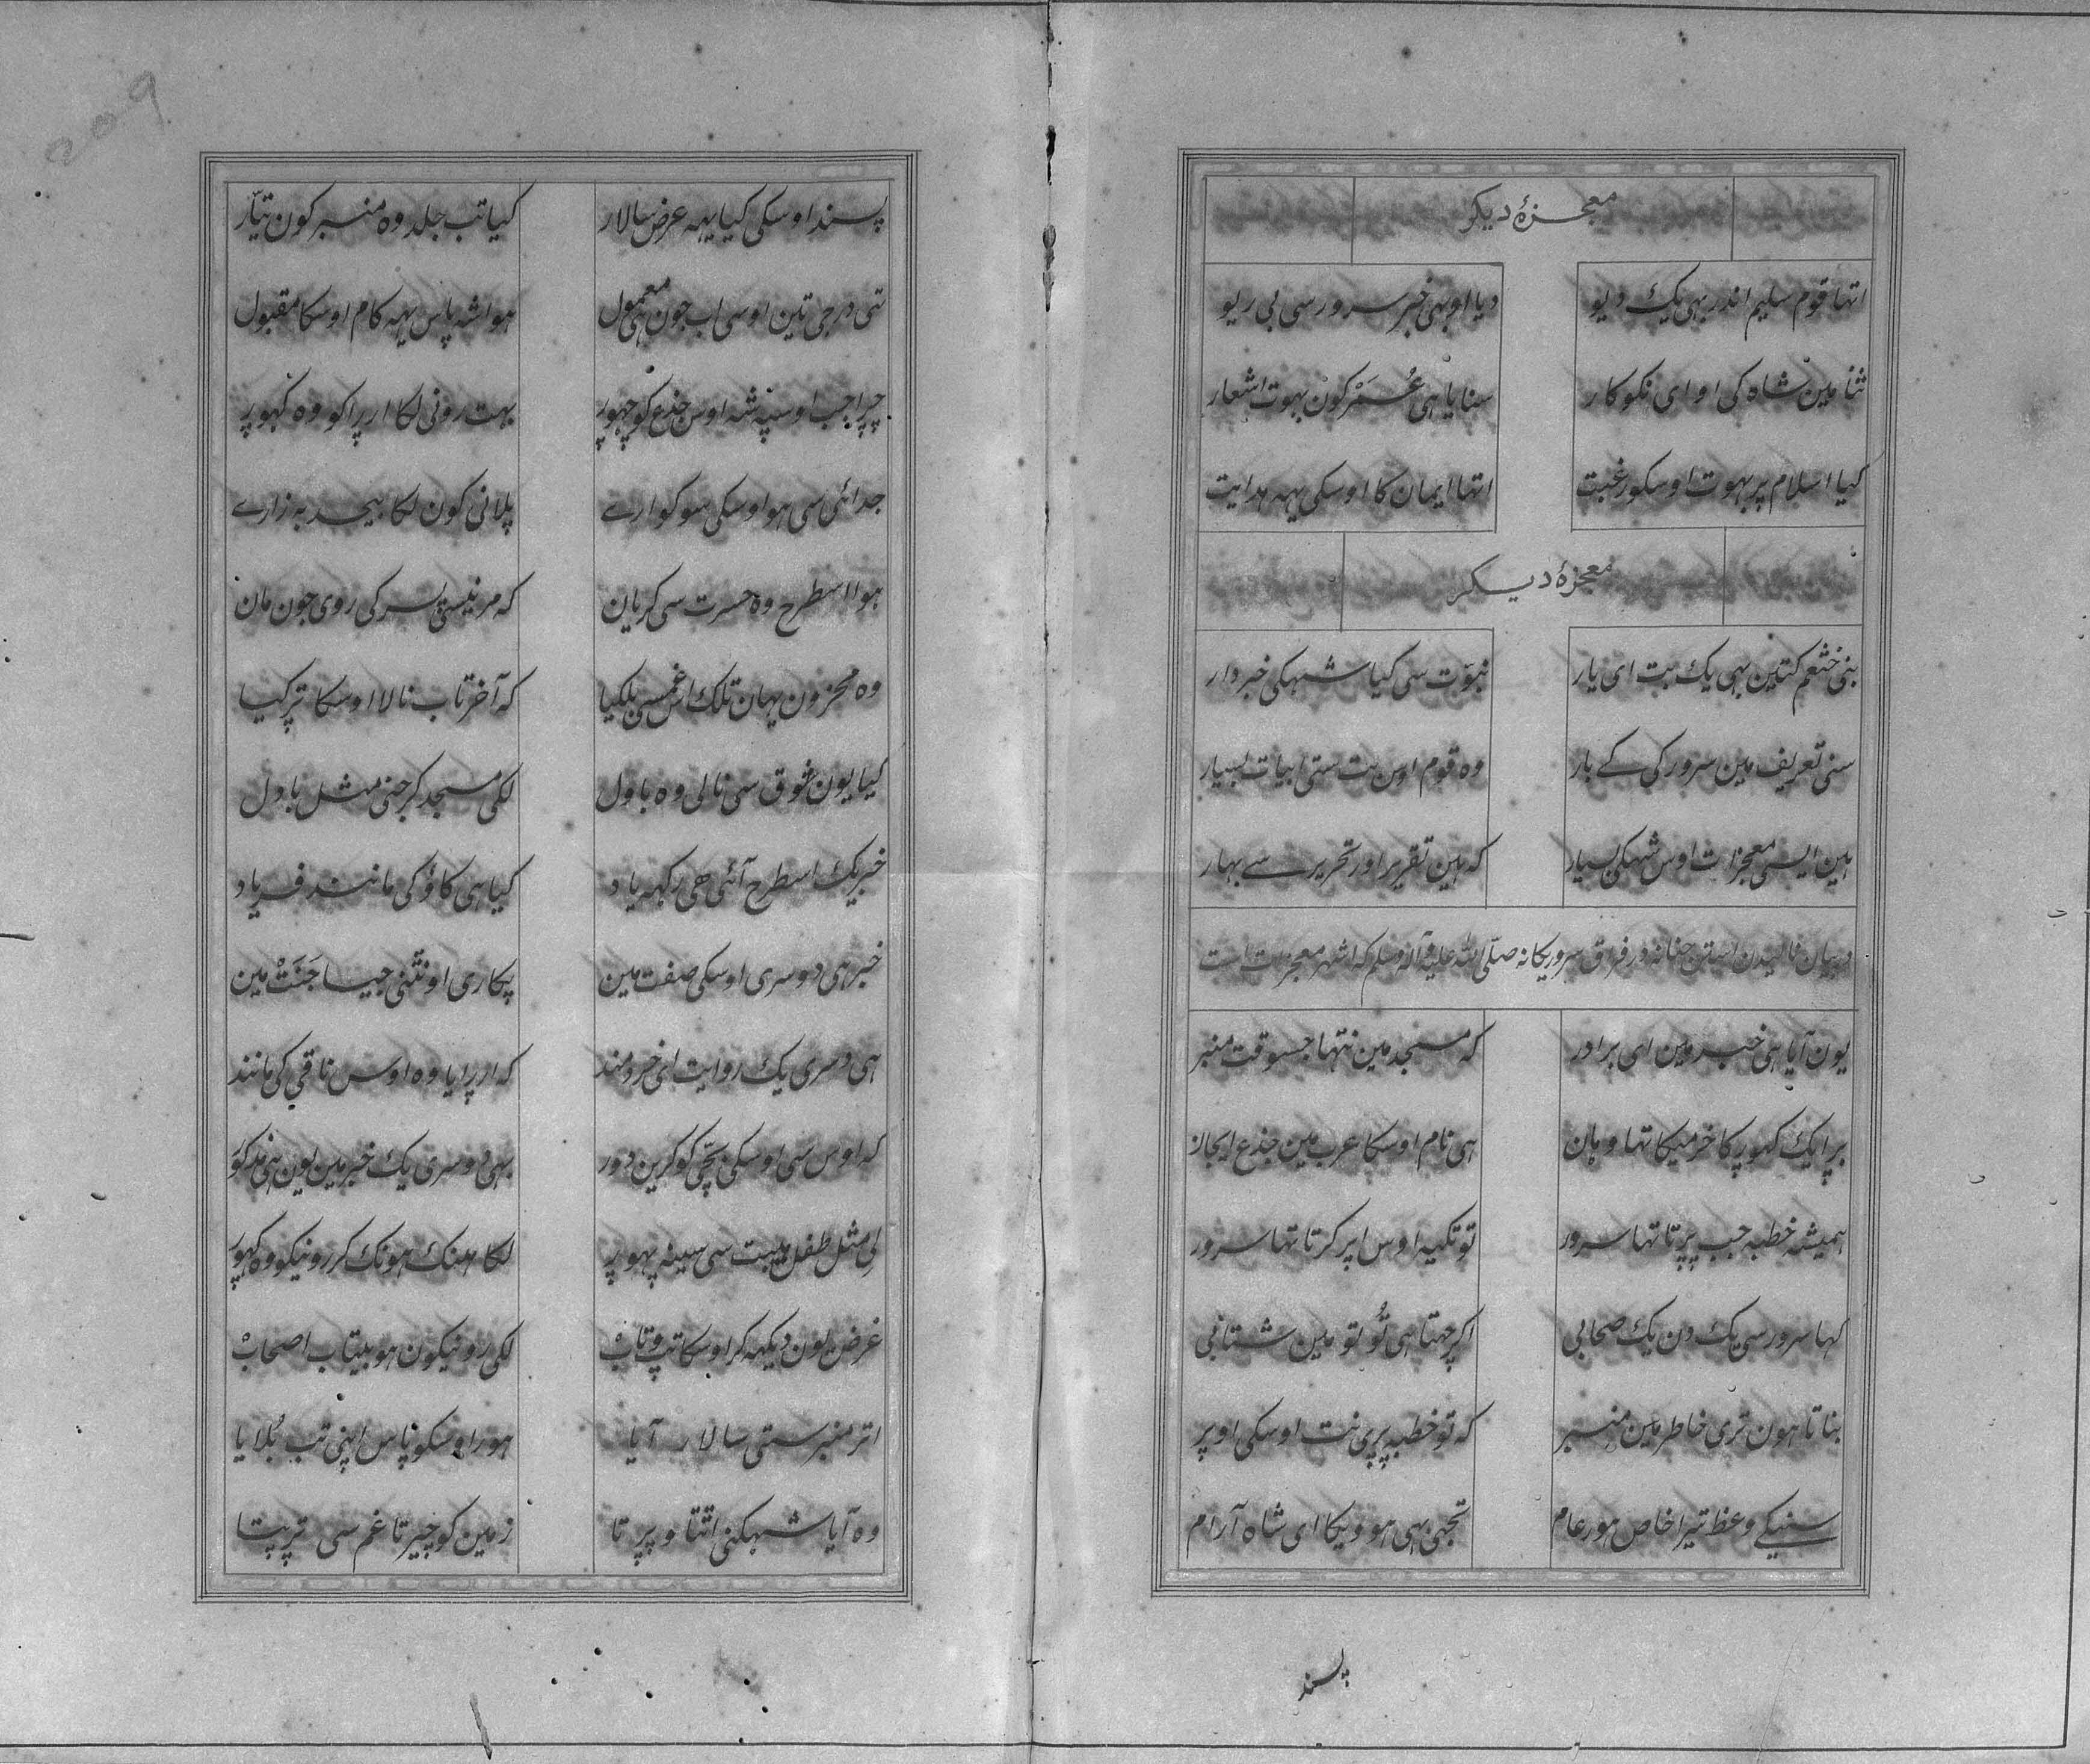 معجزهٔ دیکر
اتہا قوم سلیم اندر بہی یک دیو دیا اوبہی خبر سرور سی بی ریو
ثنا مین شاہ کی او ای نکوکار سنایا ہی عُمَرْ کون بہوت اشعار
کیا اسلام پر بہوت اوسکو رغبت اتہا ایمان کا اوسکی یہہ ہدایت
معجزهٔ دیسکر
بنی خثعم کتین بہی یک بت ای یار نبوّت سی کیا شہکی خبردار
سنی تعریف مین سرور کی کے بار وہ قوم اوس بت ستی ابیات بسیار
ہین ایسی معجزات اوس شہکی بسیار کہ ہین تقریر اور تحریر سے بہار
در بیان نالیدن استن حنانه در فراق سرور یکانه صلّی الله علیه و آله وسلم که اشهر معجزات است
یون آیا ہی خبر مین ای برادر کہ مسجد مین نتہا جسوقت منبر
برا یک کہور کا خرمیکا تہا وہان ہی نام اوسکا عرب مین جذع ایجان
ہمیشہ خطبہ جب پرتا تہا سرور تو تکیہ اوس اپر کرتا تہا سرور
کہا سرور سی یک دن یک صحابی اکر چہتا ہی تُو تو مین شتابی
بناتا ہون تری خاطر مین منبر کہ تو خطبہ پری نت اوسکی اوپر
سنیکے وعظ تیرا خاص ہور عام تجہی بہی ہوویکا ای شاہ آرام
پسند
پسند اوسکی کیا یہہ عرض سالار کیا تب جلد وہ منبر کون تیّار
تی درجی تین اوسی اب جون ہی معمول ہوا شہ پاس یہہ کام اوسکا مقبول
چرا جب اوسپہ شہ اوس جذع کو چہور بہت رونی لکا ارراکو وہ کہور
جدائی سی ہو اوسکی سوکوارے پلانی کون لکا بیحد بہ زارے
ہوا اسطرح وہ حسرت سی کریان کہ مر نیستی پسر کی روی جون مان
وہ محزون یہان تلک اس غمسین بلکیا کہ آخر تاب نالا اوسکا ترکیا
کیا یون شوق سی نالی وہ باول لکی مسجد کرجنی مثل بادل
خبر یک اسطرح آئی ھی رکہہ یاد کیا ہی کاؤ کی مانند فریاد
خبر ہی دوسری اوسکی صفت مین پکاری اونٹنی جیسا جَنَتْ مین
ہی دسری یک روایت ای خردمند کہ اررایا وہ اوس ناقی کی مانند
کہ اوس سی اوسکی بچّی کو کرین دور بہی دوسری یک خبر مین یون ہی مذکور
لی مثل طفل ہیبت سی سینہ پہور لکا ہنک ہونک کر رونیکو وہ کہور
غرض یون دیکہہ کر اوسکا تب وتابْ لکی رونیکون ہو بیتاب اصحابْ
اتر منبر ستی سالار آیا ہور اوسکو پاس اپنی تب بُلایا
وہ آیا شہکنی اتتا و پرتا زمین کو چیرتا غم سی ترپتا